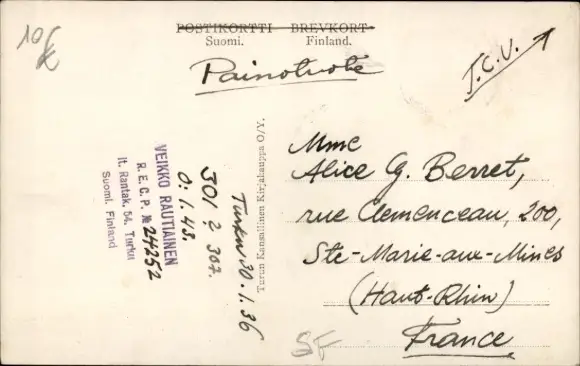 10 €
POSTIKORTTI BREVKORT
Suomi. Finland.
Painotuote
T.C.V.
Mme
Alice G. Berret,
rue Clemenceau, 200,
Ste-Marie-aux-Mines
(Haut-Rhin)
France
SF
Turun Kansallinen Kirjakauppa O/Y.
Turku 30.1.36
301 ? 307.
0.1.43.
VEIKKO RAUTIAINEN
R. E. C. P. № 24252
It. Rantak. 54. Turku
Suomi. Finland